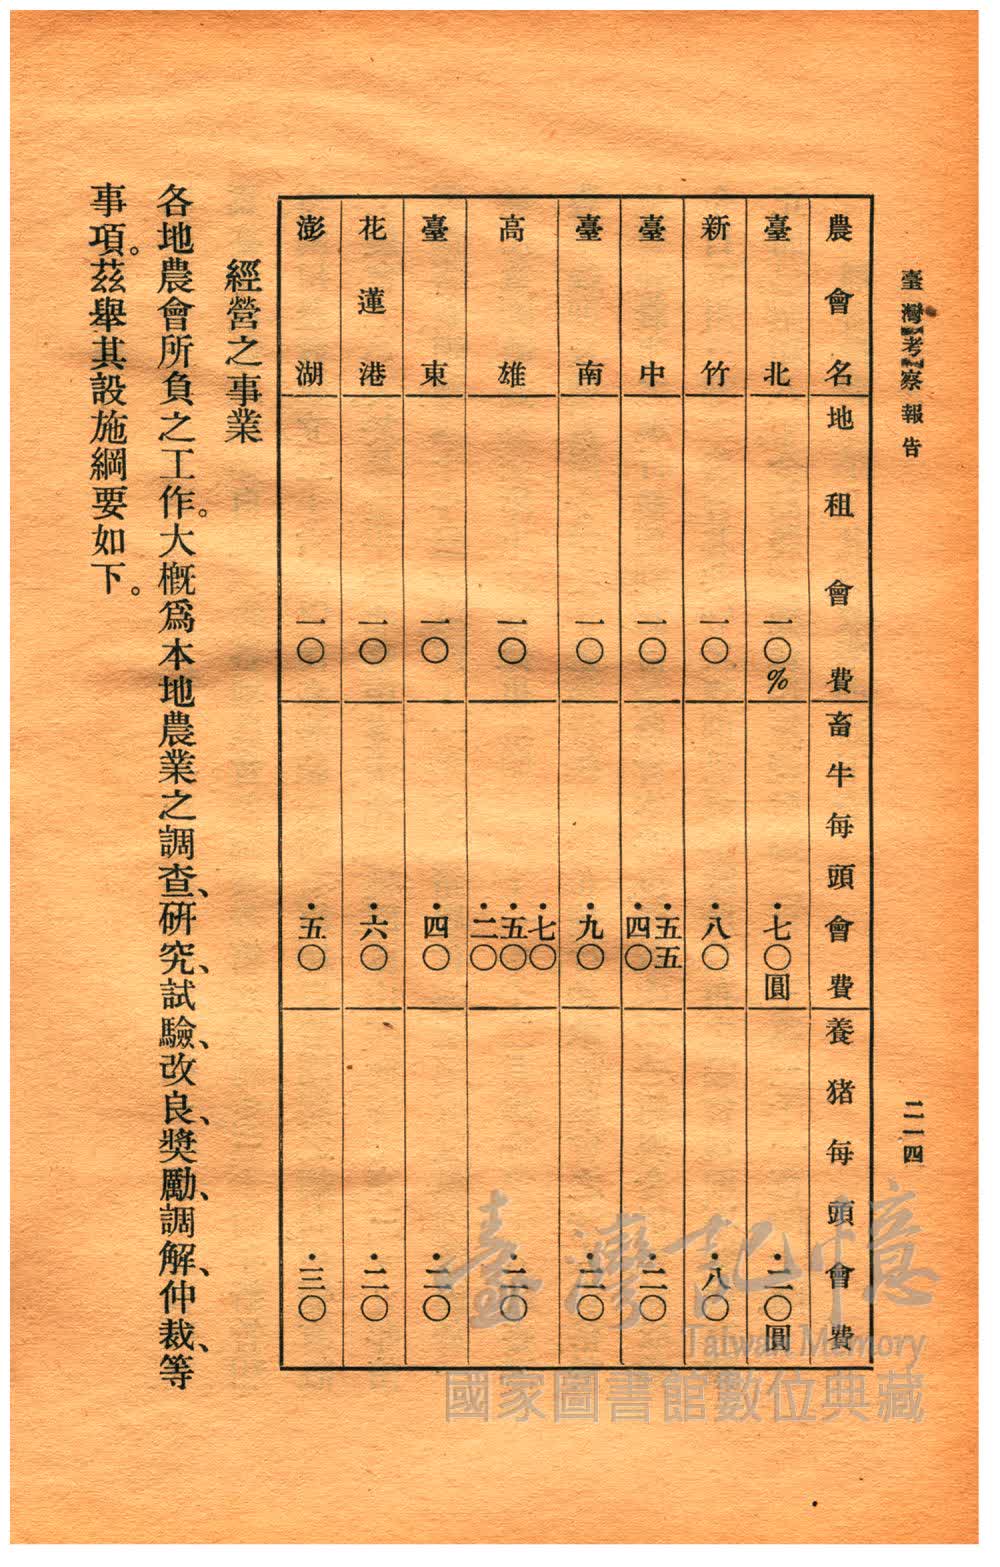 臺灣考察報告
二一四
農會名 地租會費 畜牛每頭會費 養猪每頭會費
臺北 一〇% ・七〇圓 ・二〇圓
新竹 一〇 ・八〇 ・八〇
臺中 一〇 ・五五 ・四〇 ・二〇
臺南 一〇 ・九〇 ・二〇
高雄 一〇 ・七〇 ・五〇 ・二〇 ・二〇
臺東 一〇 ・四〇 ・二〇
花蓮港 一〇 ・六〇 ・二〇
澎湖 一〇 ・五〇 ・三〇
經營之事業
各地農會所負之工作。大槪爲本地農業之調查、硏究、試驗、改良、獎勵、調解、仲裁、等
事項。茲舉其設施綱要如下。
臺灣記憶
Taiwan Memory
國家圖書館數位典藏